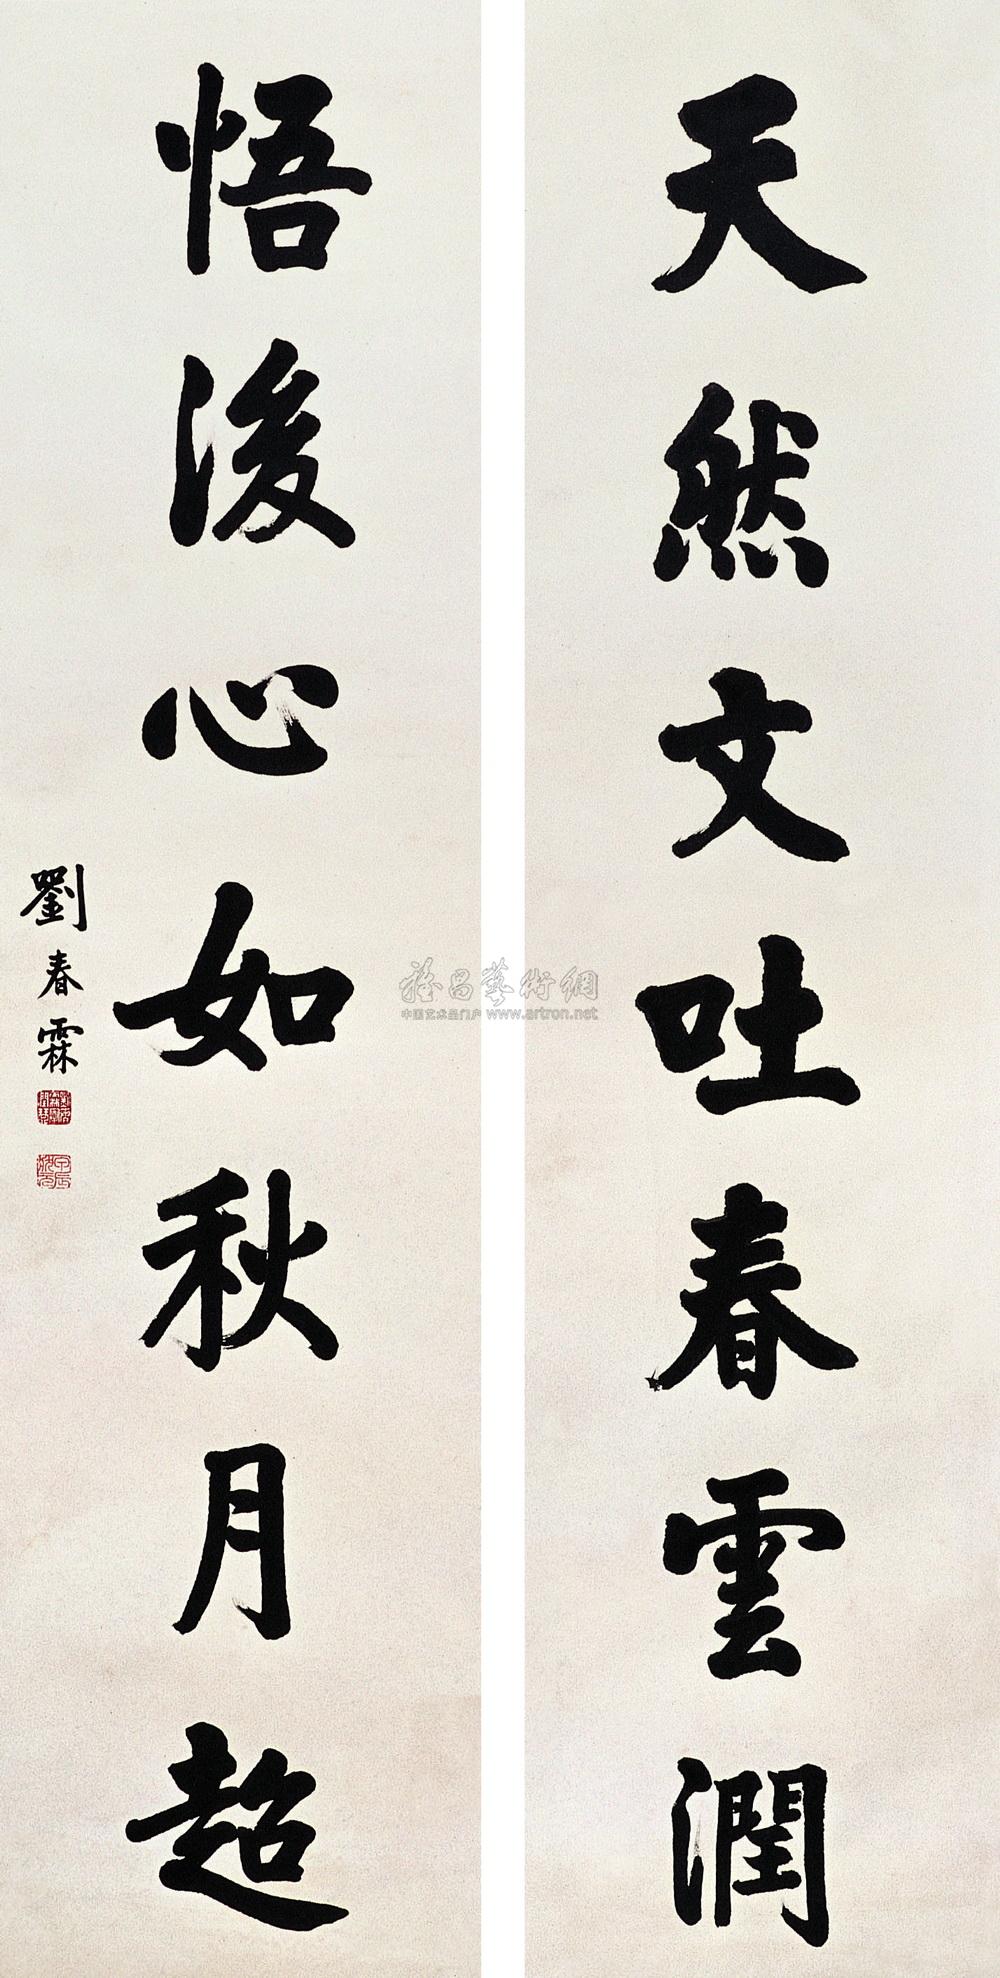 天然文吐春雲潤
悟後心如秋月超
劉春霖
雅昌藝術網
中国艺术品门户 www.artron.net